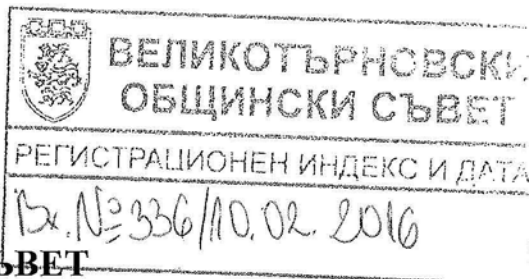 ВЕЛИКОТЪРНОВСКИ
ОБЩИНСКИ СЪВЕТ
РЕГИСТРАЦИОНЕН ИНДЕКС И ДАТА
Вх. № 336/10.02.2016
ЪВЕТ